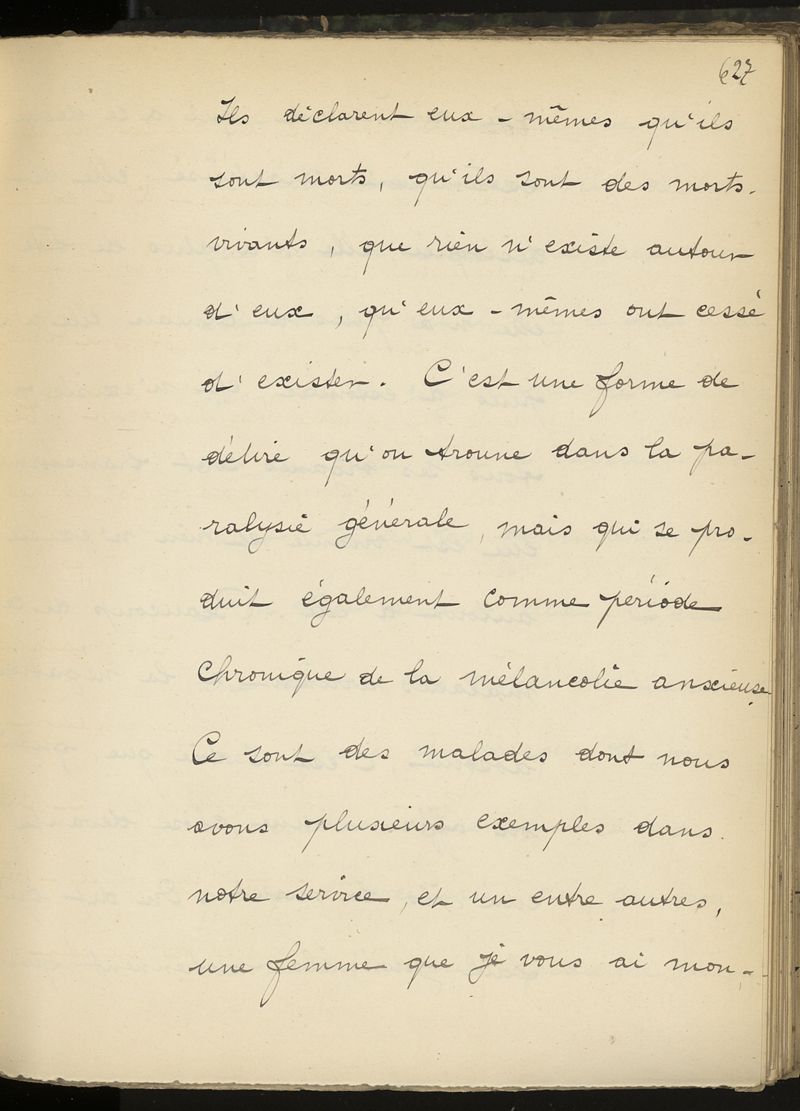 627
Ils déclarent eux-mêmes qu'ils
sont morts, qu'ils sont des morts-
vivants, que rien n'existe autour
d'eux, qu'eux-mêmes ont cessé
d'exister. C'est une forme de
délire qu'on trouve dans la pa-
ralysie générale, mais qui se pro-
duit également comme période
chronique de la mélancolie anxieuse
Ce sont des malades dont nous
avons plusieurs exemples dans
notre service, et un entre autres,
une femme que je vous ai mon-